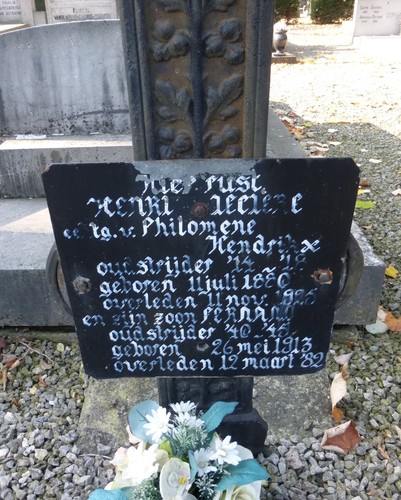 Hier rust
HENRI LECLERE
echtg. v. Philomene
Hendrikx
oudstrijder '14-'18
geboren 11 juli 1880
overleden 11 nov.
en zijn zoon FERNAND
oudstrijder '40-'45
geboren 26 mei 1913
overleden 12 maart '82